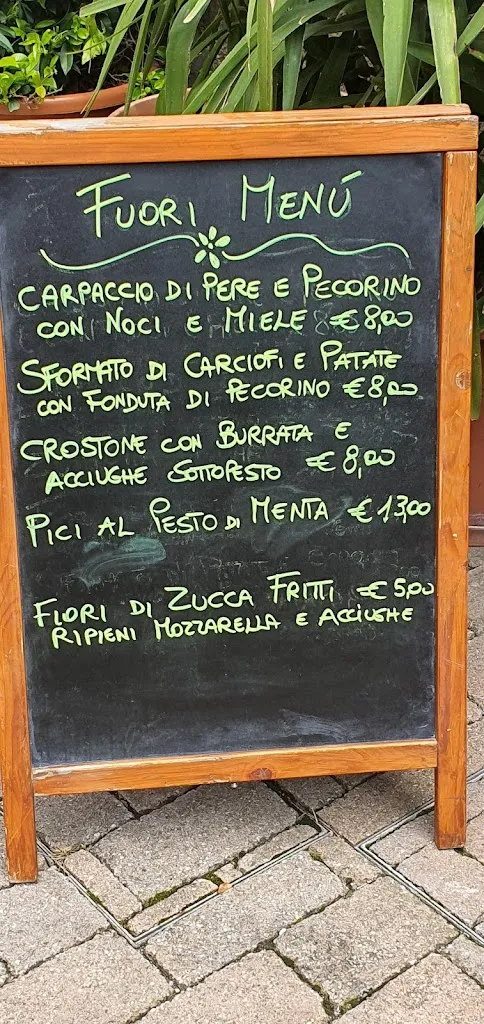 FUORI MENÚ
CARPACCIO DI PERE E PECORINO
CON NOCI E MIELE € 8,00
SFORMATO DI CARCIOFI E PATATE
CON FONDUTA DI PECORINO € 8,00
CROSTONE CON BURRATA E
ACCIUGHE SOTTOPESTO € 8,00
PICI AL PESTO DI MENTA € 13,00
FIORI DI ZUCCA FRITTI € 5,00
RIPIENI MOZZARELLA E ACCIUGHE